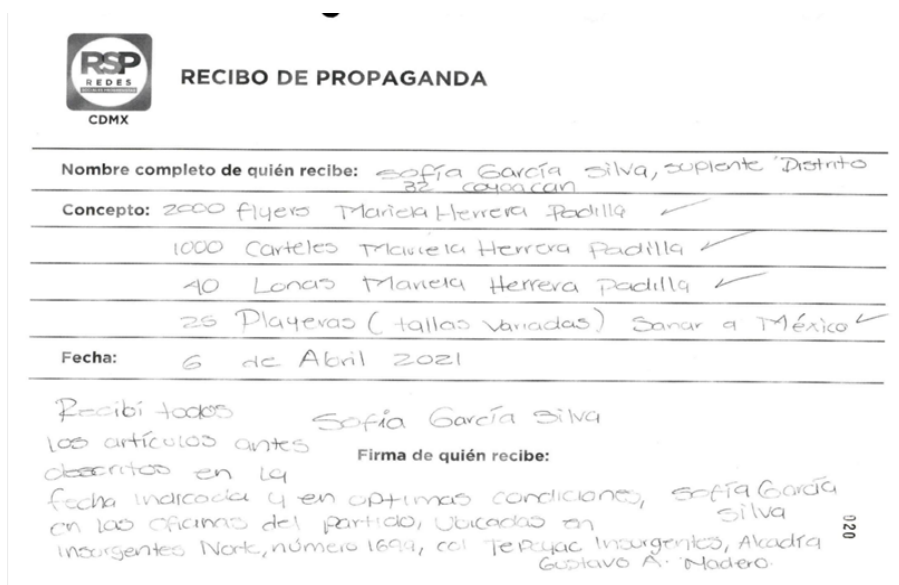 RSP
REDES
CDMX
RECIBO DE PROPAGANDA
Nombre completo de quién recibe: Sofía García Silva, suplente Distrito
32 coyoacan
Concepto: 2000 flyers Mariela Herrera Padilla
1000 Carteles Mariela Herrera Padilla
40 Lonas Mariela Herrera Padilla
25 Playeras (tallas variadas) Sanar a México
Fecha: 6 de Abril 2021
Recibí todos
los artículos antes
descritos en la
fecha indicada y en optimas condiciones,
en las oficinas del partido, Ubicadas en
insurgentes Norte, número 1699, col Tepeyac Insurgentes, Alcadía
Gustavo A. Madero.
Sofía García Silva
Firma de quién recibe:
Sofía García
Silva
020